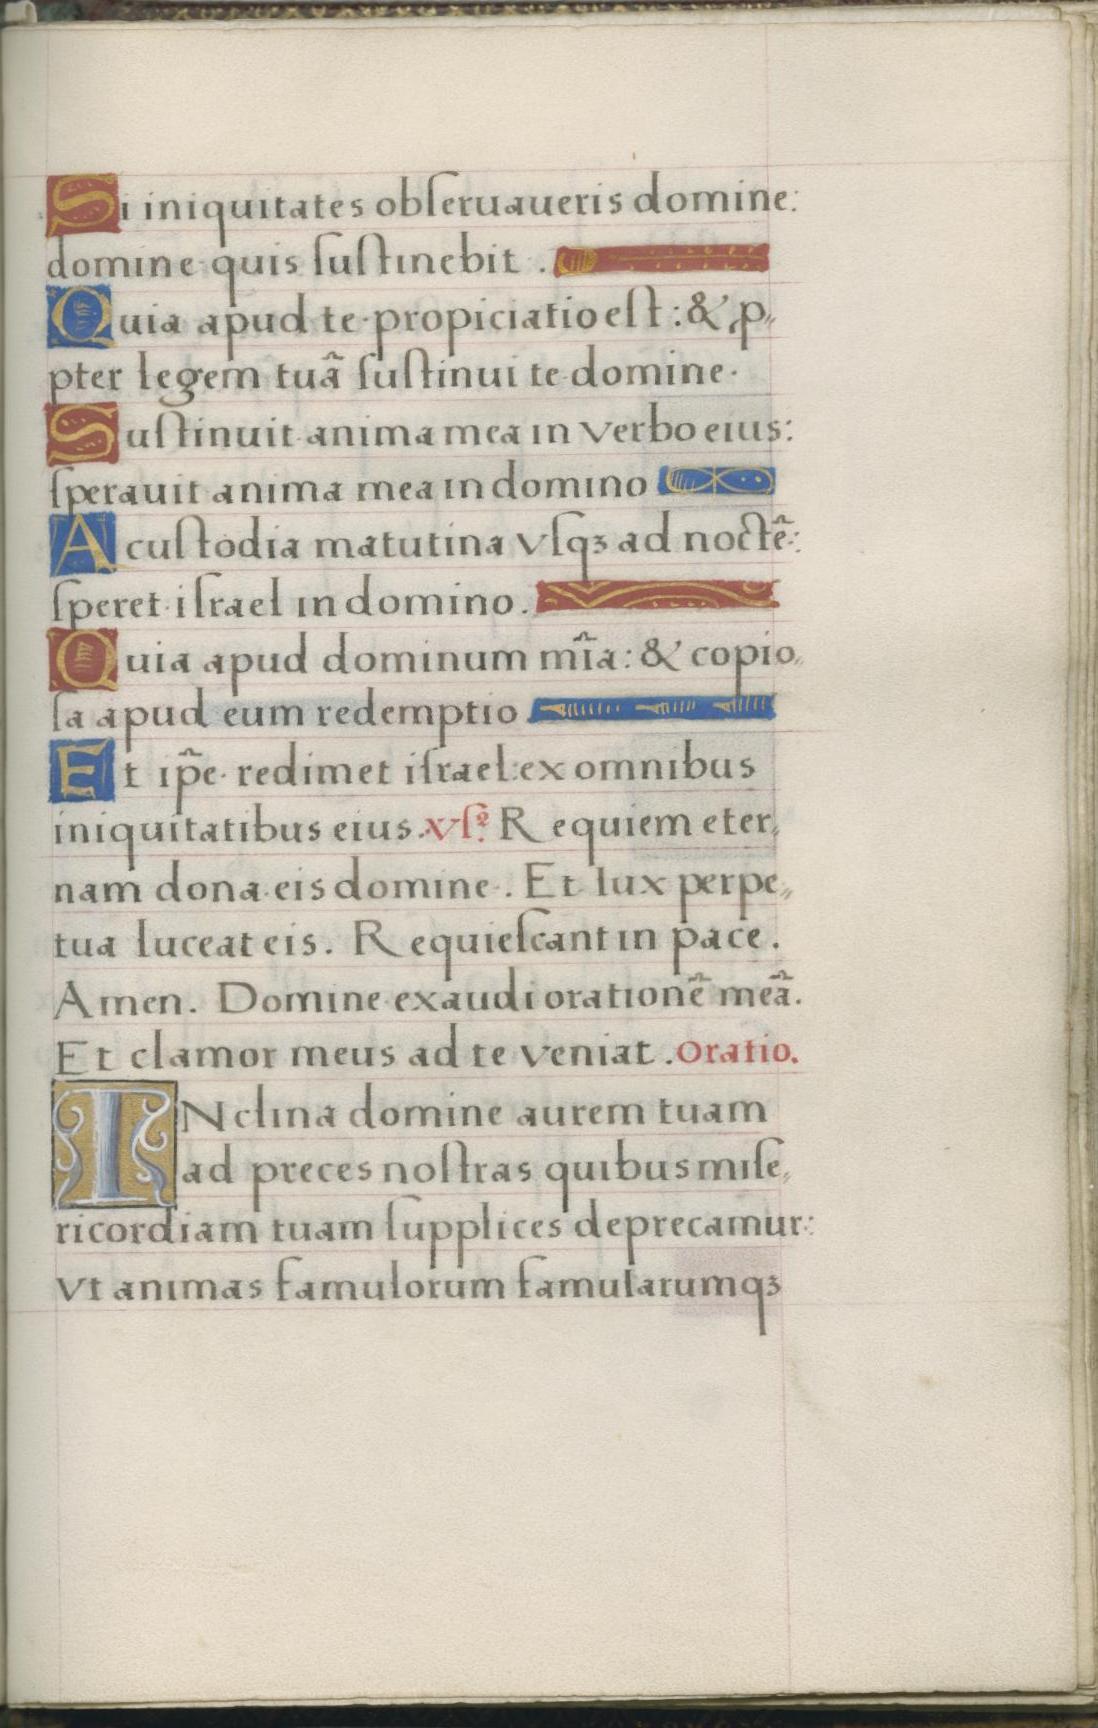 Si iniquitates obſeruaueris domine:
domine quis ſuſtinebit .
Quia apud te propiciatio eſt : & ꝓ„
pter legem tuã ſuſtinui te domine·
Suſtinuit anima mea in verbo eius:
ſperauit anima mea in domino
A cuſtodia matutina vſqꝫ ad noctẽ:
ſperet iſrael in domino .
Quia apud dominum mĩa : & copio„
ſa apud eum redemptio
Et ip̃e redimet iſrael: ex omnibus
iniquitatibus eius. vſꝰ. Requiem eter„
nam dona eis domine . Et lux perpe„
tua luceat eis . Requieſcant in pace .
Amen . Domine exaudi orationẽ meã.
Et clamor meus ad te veniat . Oratio.
INclina domine aurem tuam
ad preces noſtras quibus miſe„
ricordiam tuam ſupplices deprecamur:
vt animas famulorum famularumqꝫ